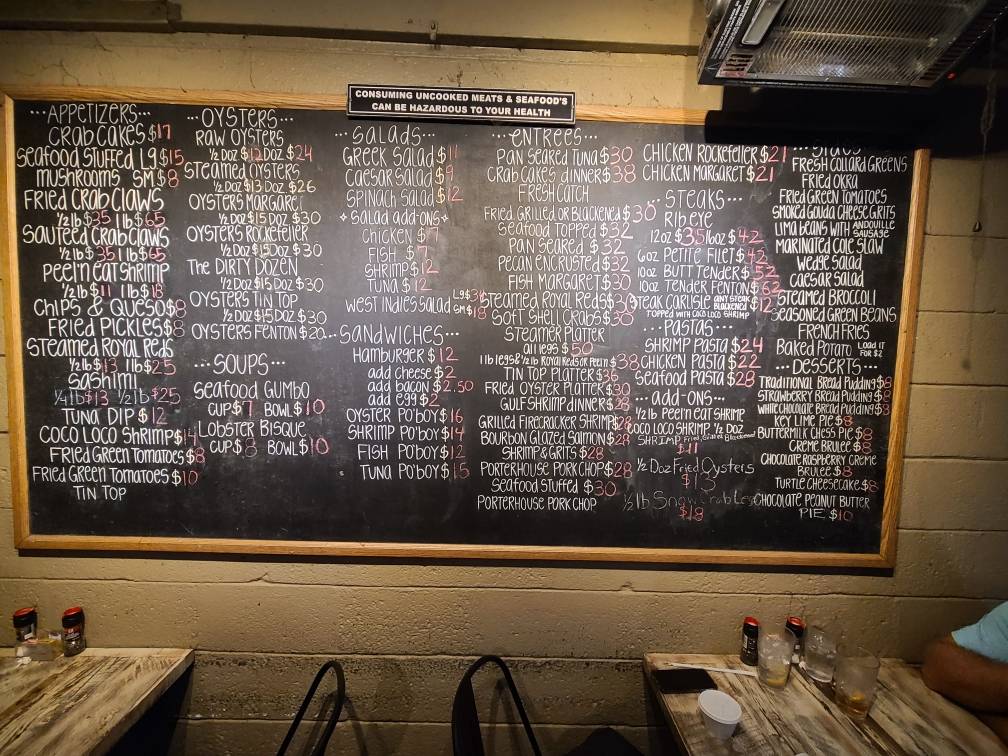 CONSUMING UNCOOKED MEATS & SEAFOOD'S
CAN BE HAZARDOUS TO YOUR HEALTH
...APPETIZERS...
CRAB CAKES $17
SEAFOOD STUFFED L9 $15
MUSHROOMS SM $8
FRIED CRAB CLAWS
½ lb $35 1 lb $65
SAUTEED CRAB CLAWS
½ lb $35 1 lb $65
PEEL'N EAT SHRIMP
½ lb $11 1 lb $18
CHIPS & QUESO $8
FRIED PICKLES $8
STEAMED ROYAL REDS
½ lb $13 1 lb $25
SASHIMI
¼ lb $13 ½ lb $25
TUNA DIP $12
COCO LOCO SHRIMP $14
FRIED GREEN TOMATOES $8
FRIED GREEN TOMATOES $10
TIN TOP
...OYSTERS...
RAW OYSTERS
½ DOZ $12 DOZ $24
STEAMED OYSTERS
½ DOZ $13 DOZ $26
OYSTERS MARGARET
½ DOZ $15 DOZ $30
OYSTERS ROCKEFELLER
½ DOZ $15 DOZ $30
THE DIRTY DOZEN
½ DOZ $15 DOZ $30
OYSTERS TIN TOP
½ DOZ $15 DOZ $30
OYSTERS FENTON $20
...SOUPS...
SEAFOOD GUMBO
CUP $7 BOWL $10
LOBSTER BISQUE
CUP $8 BOWL $10
...SALADS...
GREEK SALAD $11
CAESAR SALAD $9
SPINACH SALAD $12
SALAD ADD-ONS
CHICKEN $7
FISH $7
SHRIMP $12
TUNA $12
WEST INDIES SALAD L9 $34
SM $18
...SANDWICHES...
HAMBURGER $12
ADD CHEESE $2
ADD BACON $2.50
ADD EGG $2
OYSTER PO'BOY $16
SHRIMP PO'BOY $14
FISH PO'BOY $12
TUNA PO'BOY $15
...ENTREES...
PAN SEARED TUNA $30
CRAB CAKES DINNER $38
FRESH CATCH
FRIED, GRILLED OR BLACKENED $30
SEAFOOD TOPPED $32
PAN SEARED $32
PECAN ENCRUSTED $32
FISH MARGARET $30
STEAMED ROYAL REDS $30
SOFT SHELL CRABS $30
STEAMER PLATTER
ALL LEGS $50
1 lb LEGS & ½ lb ROYAL REDS OR PEEL'N $38
TIN TOP PLATTER $36
FRIED OYSTER PLATTER $30
GULF SHRIMP DINNER $28
GRILLED FIRECRACKER SHRIMP $28
BOURBON GLAZED SALMON $28
SHRIMP & GRITS $28
PORTERHOUSE PORK CHOP $28
SEAFOOD STUFFED $30
PORTERHOUSE PORK CHOP
CHICKEN ROCKEFELLER $21
CHICKEN MARGARET $21
...STEAKS...
RIBEYE
12oz $35 16oz $42
6oz PETITE FILET $42
10oz BUTT TENDER $52
10oz TENDER FENTON $62
STEAK CARLISLE ANY STEAK BLACKENED $12
TOPPED WITH COCO LOCO SHRIMP
...PASTAS...
SHRIMP PASTA $24
CHICKEN PASTA $22
SEAFOOD PASTA $28
...ADD-ONS...
½ lb PEEL'N EAT SHRIMP
COCO LOCO SHRIMP ½ DOZ
SHRIMP Fried, Grilled, Blackened
$11
½ DOZ FRIED OYSTERS
$13
½ lb SNOW CRAB LEGS
$18
FRESH COLLARD GREENS
FRIED OKRA
FRIED GREEN TOMATOES
SMOKED GOUDA CHEESE GRITS
LIMA BEANS WITH ANDOUILLE SAUSAGE
MARINATED COLE SLAW
WEDGE SALAD
CAESAR SALAD
STEAMED BROCCOLI
SEASONED GREEN BEANS
FRENCH FRIES
BAKED POTATO LOAD IT FOR $2
...DESSERTS...
TRADITIONAL BREAD PUDDING $8
STRAWBERRY BREAD PUDDING $8
WHITE CHOCOLATE BREAD PUDDING $8
KEY LIME PIE $8
BUTTERMILK CHESS PIE $8
CREME BRULEE $8
CHOCOLATE RASPBERRY CREME
BRULEE $8
TURTLE CHEESECAKE $8
CHOCOLATE PEANUT BUTTER
PIE $10